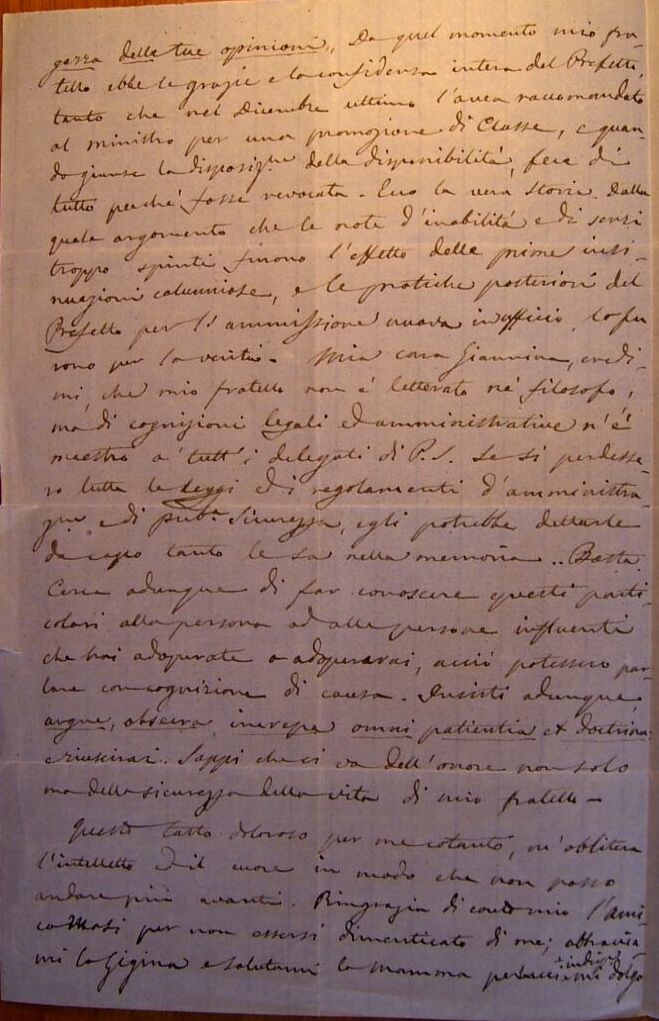 gezza delle tue opinioni,, Da quel momento mio fra-
tello ebbe le grazie e la confidenza intera del Prefetto,
tanto che nel Dicembre ultimo l'avea raccomandato
al ministro per una promozione di Classe, e quan-
do giunse la disposiz.ne della disponibilità, fece di
tutto perché fosse revocata. Ecco la vera storia. Dalla
quale argomento che le note d'inabilità e di sensi
troppo spinti furono l'effetto delle prime insi-
nuazioni calunniose, e le pratiche posteriori del
Prefetto per l'ammissione nuova in ufficio, lo fu
rono per la verità. Mia cara Giannina, credi-
mi, che mio fratello non é letterato né filosofo,
ma di cognizioni legali ed amministrative n'é
maestro a' tutt'i delegati di P. S. Se si perdesse-
ro tutte le leggi ed i regolamenti d'amministra-
z.ne e di pub.a Sicurezza, egli potrebbe dettarle
da capo tanto le sa nella memoria .. Basta.
Cerca adunque di far conoscere questi parti-
colari alla persona ad alle persone influenti
che hai adoperate o adopererai, acciò potessero par-
lare con cognizione di causa. Insisti adunque,
argue, obsecra, increpa omni patientia et doctrina
e riuscirai. Sappi che ci va dell'onore non solo
ma della sicurezza della vita di mio fratello -
Questo fatto doloroso per me cotanto, m'oblitera
l'intelletto ed il cuore in modo che non posso
andare più avanti. Ringrazia di conto mio l'ami-
co Masi per non essersi dimenticato di me;
mi la Gigina e salutami la mamma mi dolgo